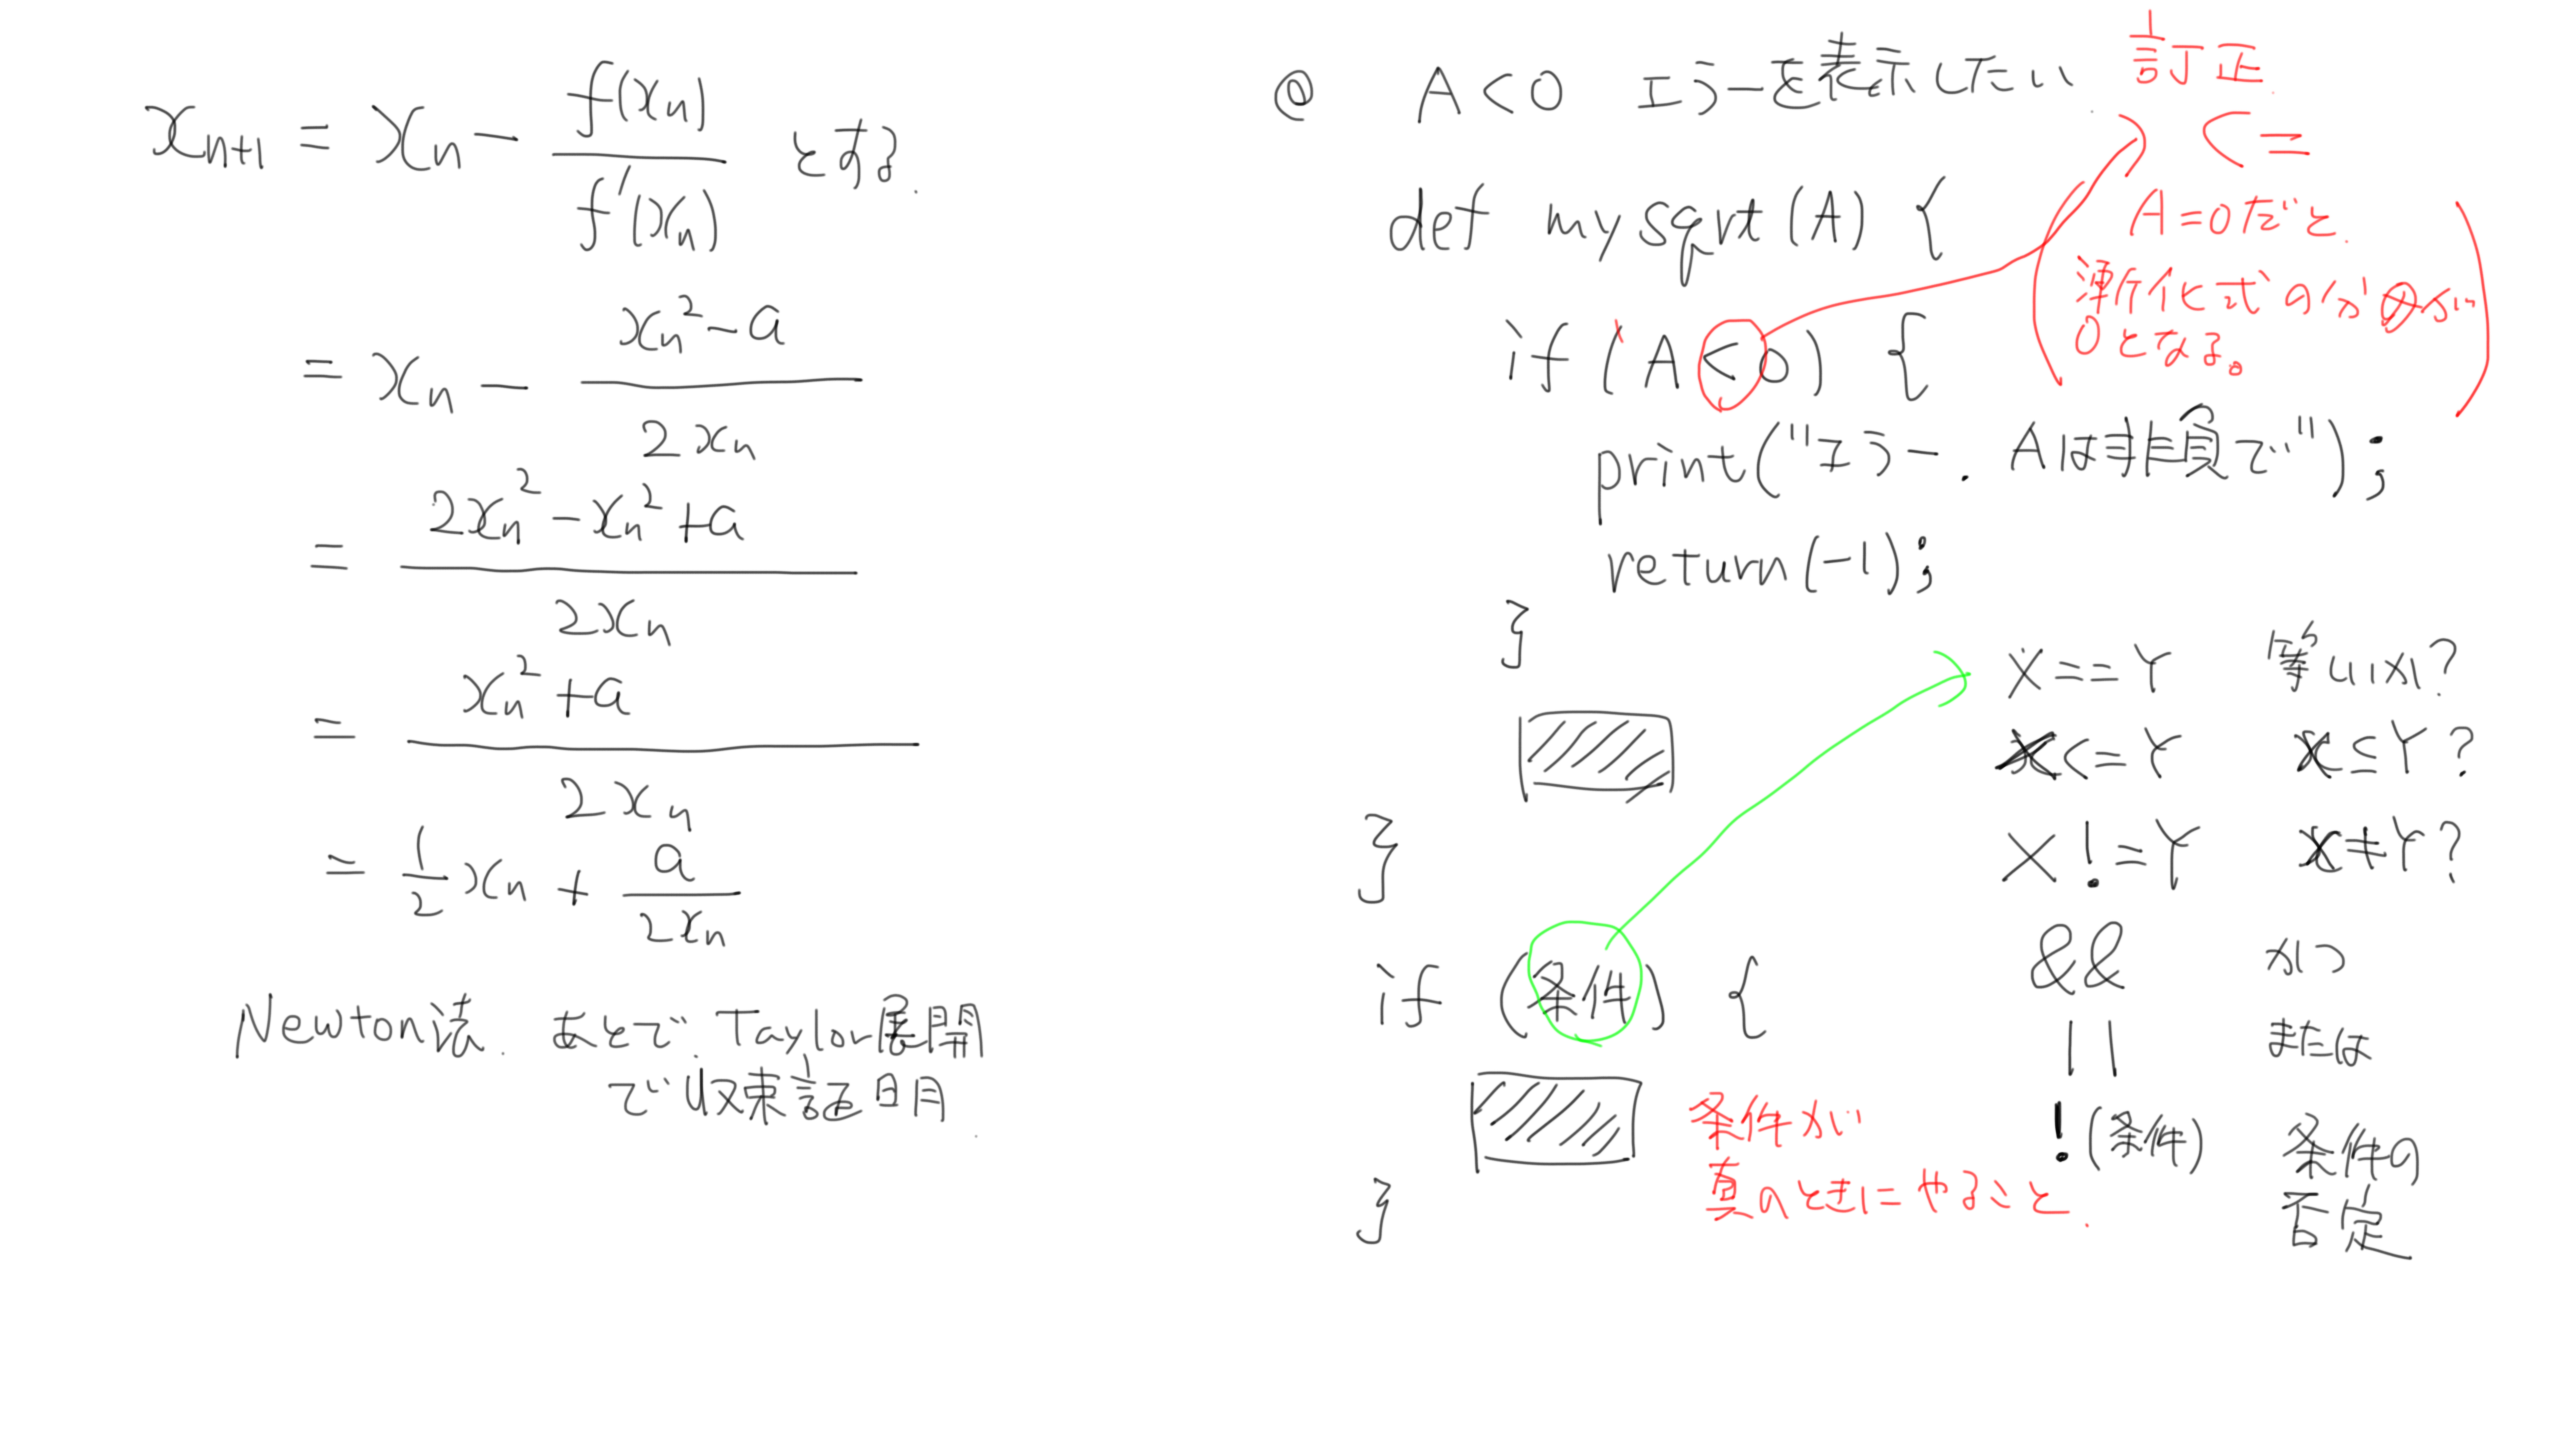 x_{n+1} = x_n - f(x_n)/f'(x_n) とする.
= x_n - (x_n^2 - a)/(2x_n)
= (2x_n^2 - x_n^2 + a)/(2x_n)
= (x_n^2 + a)/(2x_n)
= 1/2 x_n + a/(2x_n)
Newton法. あとで. Taylor展開
で収束証明.
@ A<0 エラーを表示したい.
訂正.
<=
A=0だと.
漸化式の分母が
0となる。
def mysqrt(A) {
if (A<0) {
print("エラー. Aは非負で");
return(-1);
}
}
X==Y 等しいか?
X<=Y X≤Y?
X!=Y X≠Y?
&& かつ
|| または
!(条件) 条件の
否定
if (条件) {
条件が
真のときにやること.
}